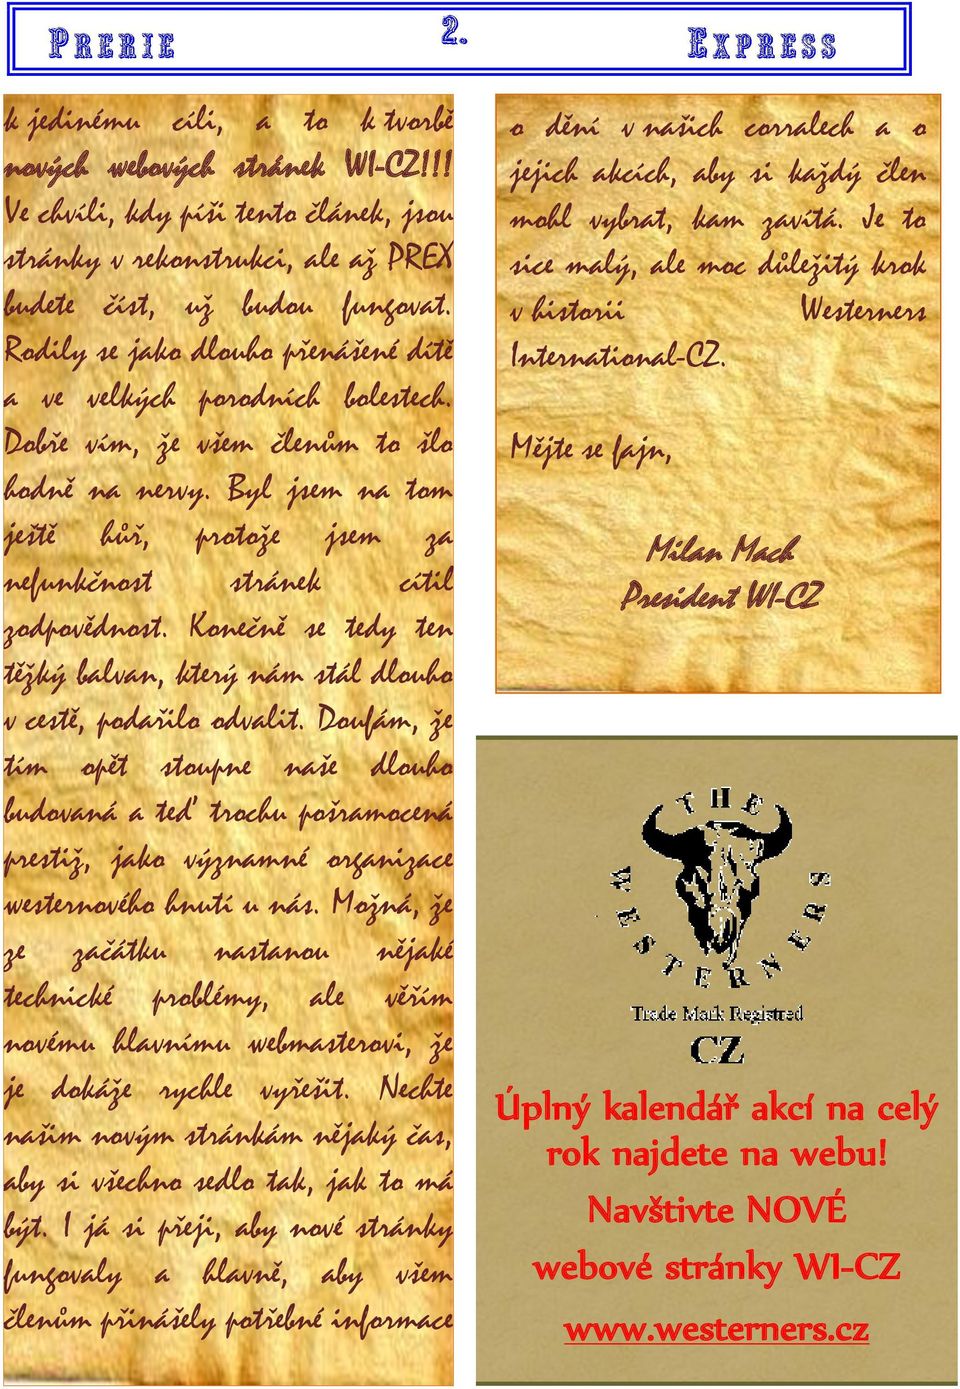 PRERIE 2. EXPRESS
k jedinému cíli, a to k tvorbě
nových webových stránek WI-CZ!!!
Ve chvíli, kdy píši tento článek, jsou
stránky v rekonstrukci, ale až PREX
budete číst, už budou fungovat.
Rodily se jako dlouho přenášené dítě
a ve velkých porodních bolestech.
Dobře vím, že všem členům to šlo
hodně na nervy. Byl jsem na tom
ještě hůř, protože jsem za
nefunkčnost stránek cítil
zodpovědnost. Konečně se tedy ten
těžký balvan, který nám stál dlouho
v cestě, podařilo odvalit. Doufám, že
tím opět stoupne naše dlouho
budovaná a teď trochu pošramocená
prestiž, jako významné organizace
westernového hnutí u nás. Možná, že
ze začátku nastanou nějaké
technické problémy, ale věřím
novému hlavnímu webmasterovi, že
je dokáže rychle vyřešit. Nechte
našim novým stránkám nějaký čas,
aby si všechno sedlo tak, jak to má
být. I já si přeji, aby nové stránky
fungovaly a hlavně, aby všem
členům přinášely potřebné informace
o dění v našich corralech a o
jejich akcích, aby si každý člen
mohl vybrat, kam zavítá. Je to
sice malý, ale moc důležitý krok
v historii Westerners
International-CZ.
Mějte se fajn,
Milan Mach
President WI-CZ
THE
WESTERNERS
Trade Mark Registred
CZ
Úplný kalendář akcí na celý
rok najdete na webu!
Navštivte NOVÉ
webové stránky WI-CZ
www.westerners.cz